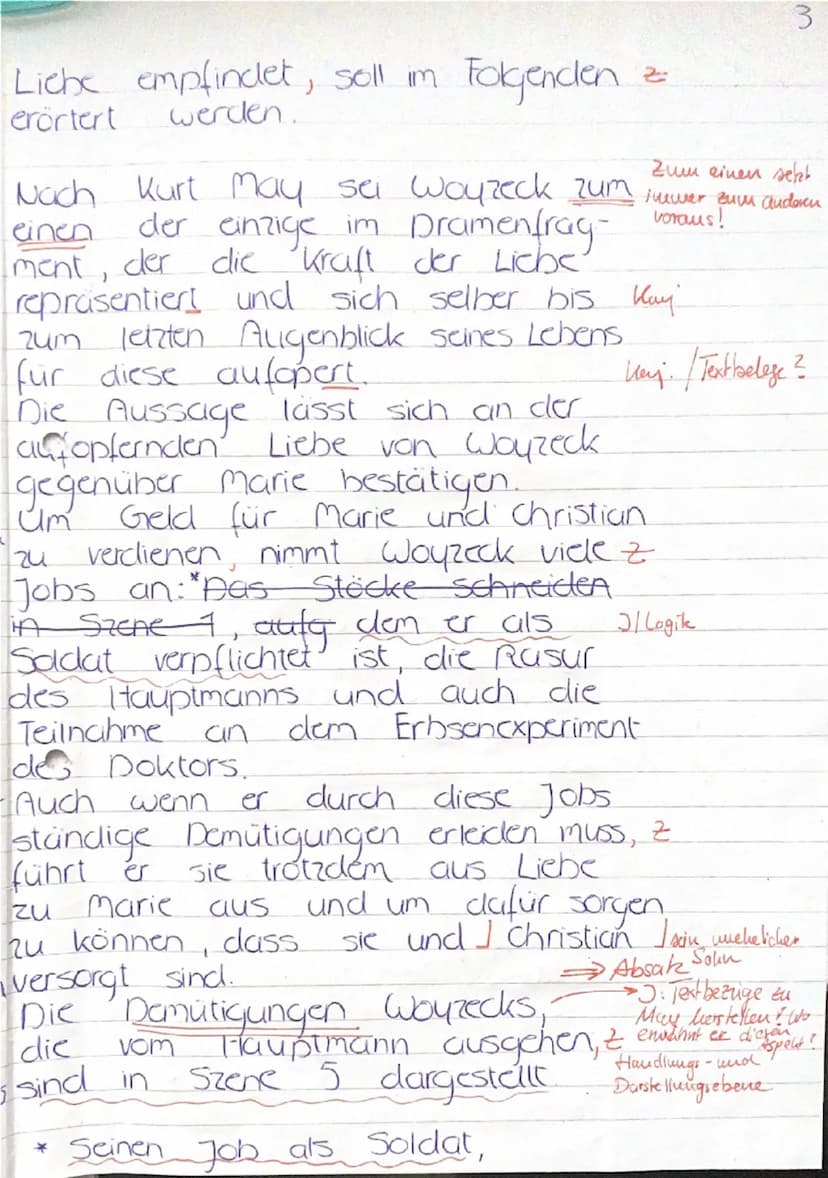 3
Liebe empfindet, soll im Folgenden Z
erörtert werden.
Nach Kurt May sei Woyzeck zum
Zum einen setzt
immer zum anderen
voraus!
einen der einzige im Dramenfrag-
ment, der die Kraft der Liebe
repräsentiert und sich selber bis Konj
zum letzten Augenblick seines Lebens
für diese aufopert. Konj. / Textbelege?
Die Aussage lässt sich an der
aufopfernden Liebe von Woyzeck
gegenüber Marie bestätigen.
Um Geld für Marie und Christian
zu verdienen, nimmt Woyzeck viele Z
Jobs an:* Das Stöcke schneiden
in Szene 1, aufg dem er als J/Logik
Soldat verpflichtet ist, die Rasur
des Hauptmanns und auch die
Teilnahme an dem Erbsenexperiment
des Doktors.
Auch wenn er durch diese Jobs
ständige Demütigungen erleiden muss, Z
führt er sie trotzdem aus Liebe
zu Marie aus und um dafür sorgen
zu können, dass sie und ⌋ Christian ⌋ sein unehelicher
Sohn
versorgt sind.
⇒ Absatz
Die Demütigungen Woyzecks,
→ J: Textbezüge zu
May herstellen! Wo
die vom Hauptmann ausgehen, Z
erwähnt er diesen
Aspekt!
sind in Szene 5 dargestellt
Handlungs- und
Darstellungsebene
* Seinen Job als Soldat,